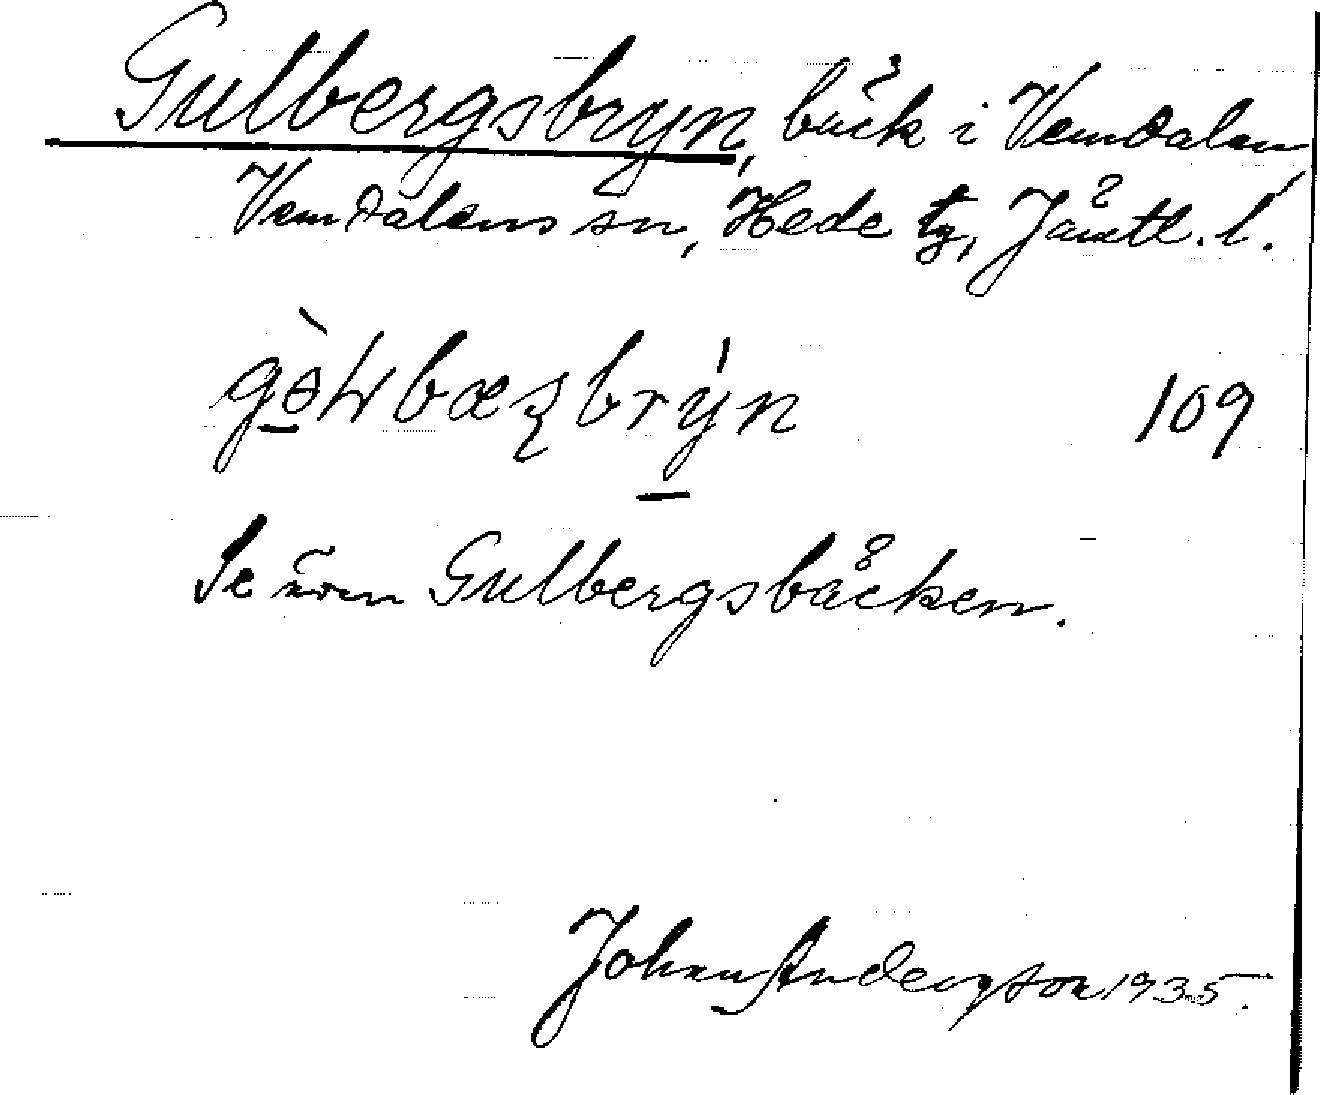 Gulbergsbryn, bäck i Vemdalen,
Vemdalens sn, Hede tg, Jämtl. l.
109
Se även Gulbergsbäcken.
Johan Andersson 1935.